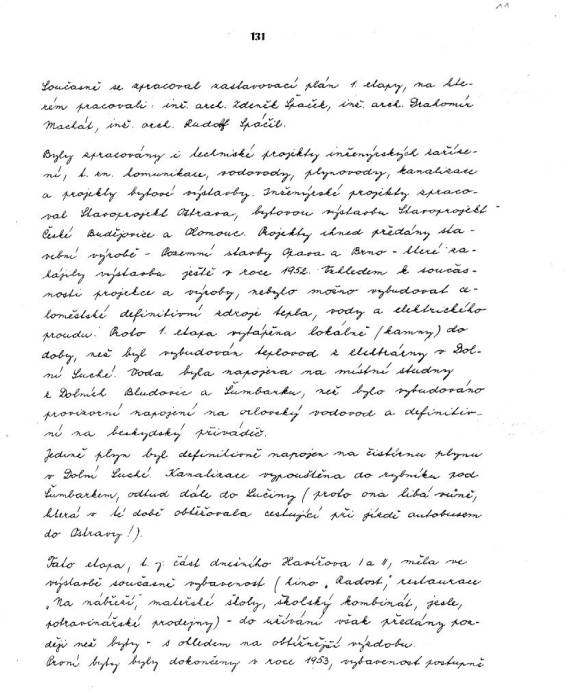 11
131
Současně se zpracoval zastavovací plán 1. etapy, na kte-
rém pracovali: inž. arch. Zdeněk Špaček, inž. arch. Drahomír
Machát, inž. arch. Rudolf Spáčil.
Byly zpracovány i technické projekty inženýrských zaříze-
ní, t. zn. komunikace, vodovody, plynovody, kanalizace
a projekty bytové výstavby. Inženýrské projekty zpraco-
val Stavoprojekt Ostrava, bytovou výstavbu Stavoprojekt -
České Budějovice a Olomouc. Projekty ihned předány sta-
vební výrobě - Pozemní stavby Opava a Brno - které za-
hájily výstavbu ještě v roce 1952. Vzhledem k součas-
nosti projekce a výroby, nebylo možno vybudovat ce-
loměstské definitivní zdroje tepla, vody a elektrického
proudu. Proto 1. etapa vytápěna lokálně (kamny) do
doby, než byl vybudován teplovod z elektrárny v Dol-
ní Suché. Voda byla napojena na místní studny
z Dolních Bludovic a Šumbarku, než bylo vybudováno
provizorní napojení na orlovský vodovod a definitiv-
ní na beskydský přivaděč.
Jedině plyn byl definitivně napojen na čistírnu plynu
v Dolní Suché. Kanalizace vypouštěna do rybníku pod
Šumbarkem, odtud dále do Lučiny (proto ona libá vůně,
která v té době obtěžovala cestující při jízdě autobusem
do Ostravy!).
Tato etapa, t. j. část dnešního Havířova I a II, měla ve
výstavbě současně vybavenost (kino „Radost", restaurace
„Na nábřeží", mateřské školy, školský kombinát, jesle,
potravinářské prodejny) - do užívání však předány poz-
ději než byty - s ohledem na obtížnější výzdobu.
První byty byly dokončeny v roce 1953, vybavenost postupně